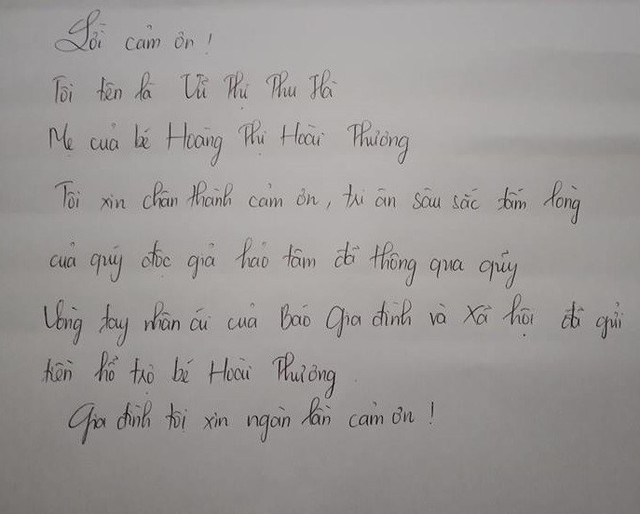 Lời cảm ơn!
Tôi tên là Vũ Thị Thu Hà
Mẹ của bé Hoàng Thị Hoài Thương
Tôi xin chân thành cảm ơn, tri ân sâu sắc tấm lòng
của quý độc giả hảo tâm đã thông qua quỹ
Vòng tay nhân ái của Báo Gia đình và Xã hội đã gửi
tiền hổ trợ bé Hoài Thương.
Gia đình tôi xin ngàn lần cảm ơn!